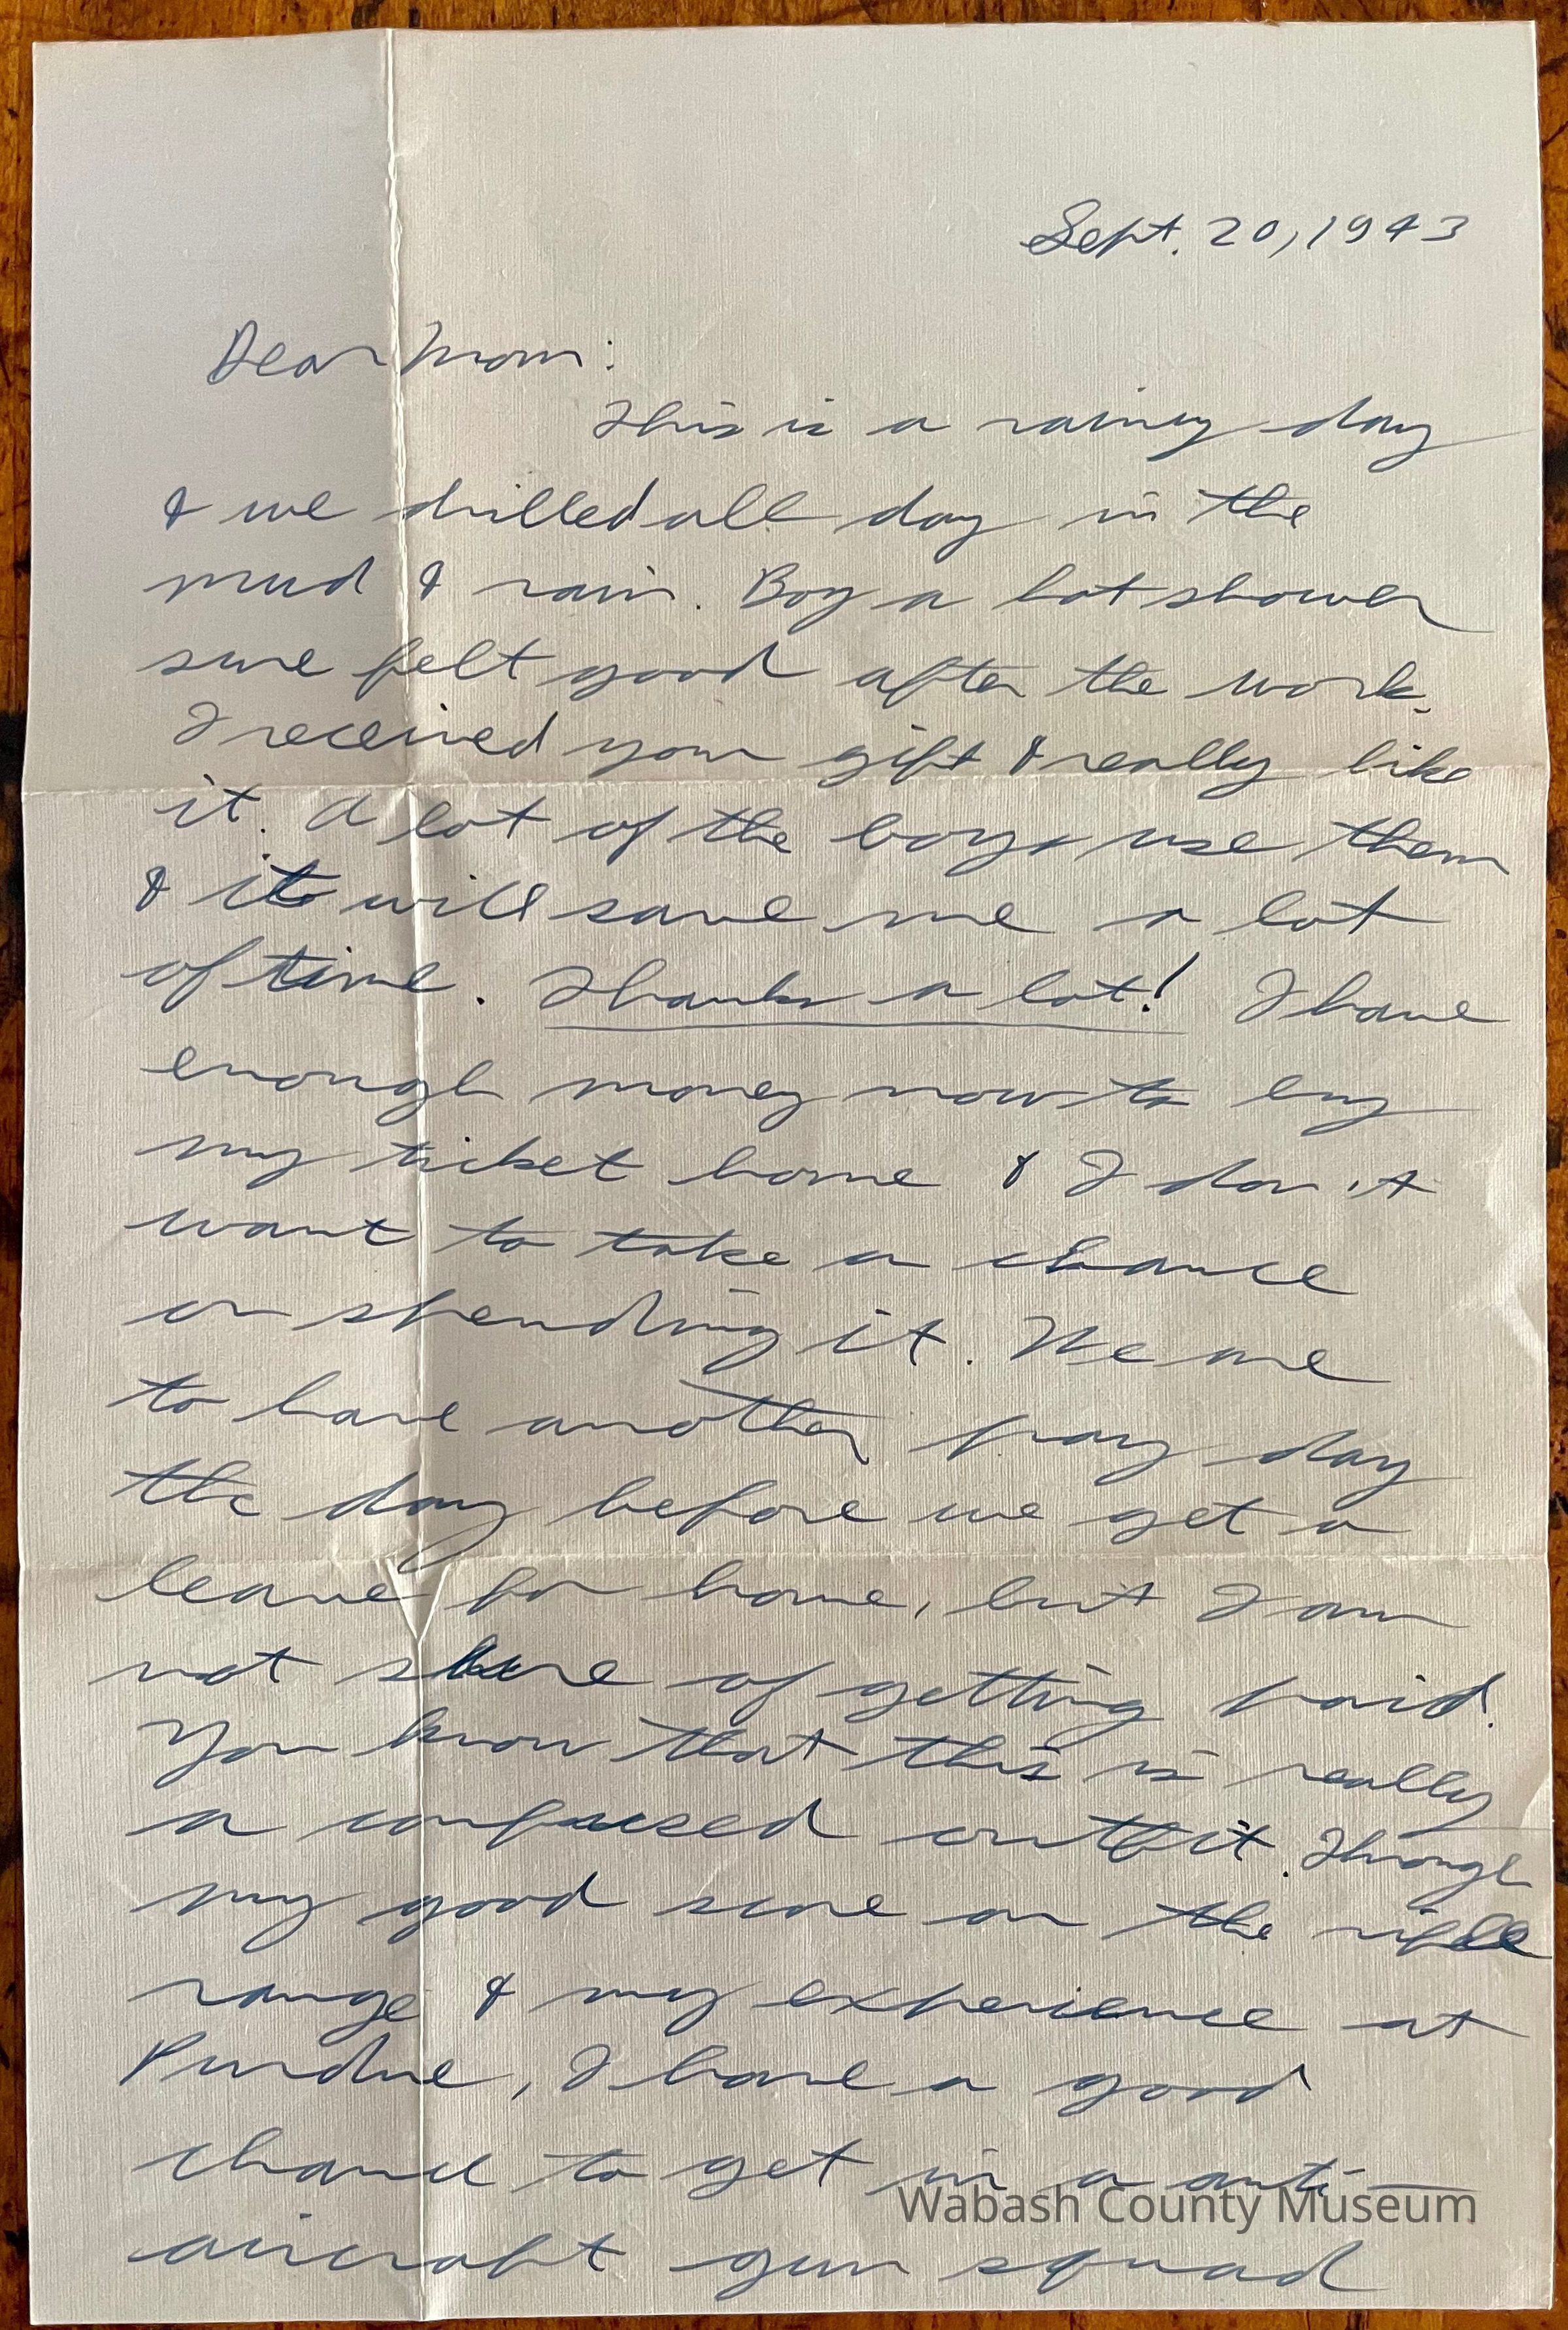 Sept. 20, 1943
Dear Mom:
This is a rainy day
& we drilled all day in the
mud & rain. Boy a hot shower
sure felt good after the work.
I received your gift & really like
it. A lot of the boys use them
& it will save me a lot
of time. Thanks a lot! I have
enough money now to buy
my ticket home & I don't
want to take a chance
on spending it. We are
to have another pay day
the day before we get a
leave for home, but I am
not sure of getting paid.
You know that this is really
a confused outfit. Through
my good score on the rifle
range & my experience at
Purdue, I have a good
chance to get in a anti-
aircraft gun squad
Wabash County Museum